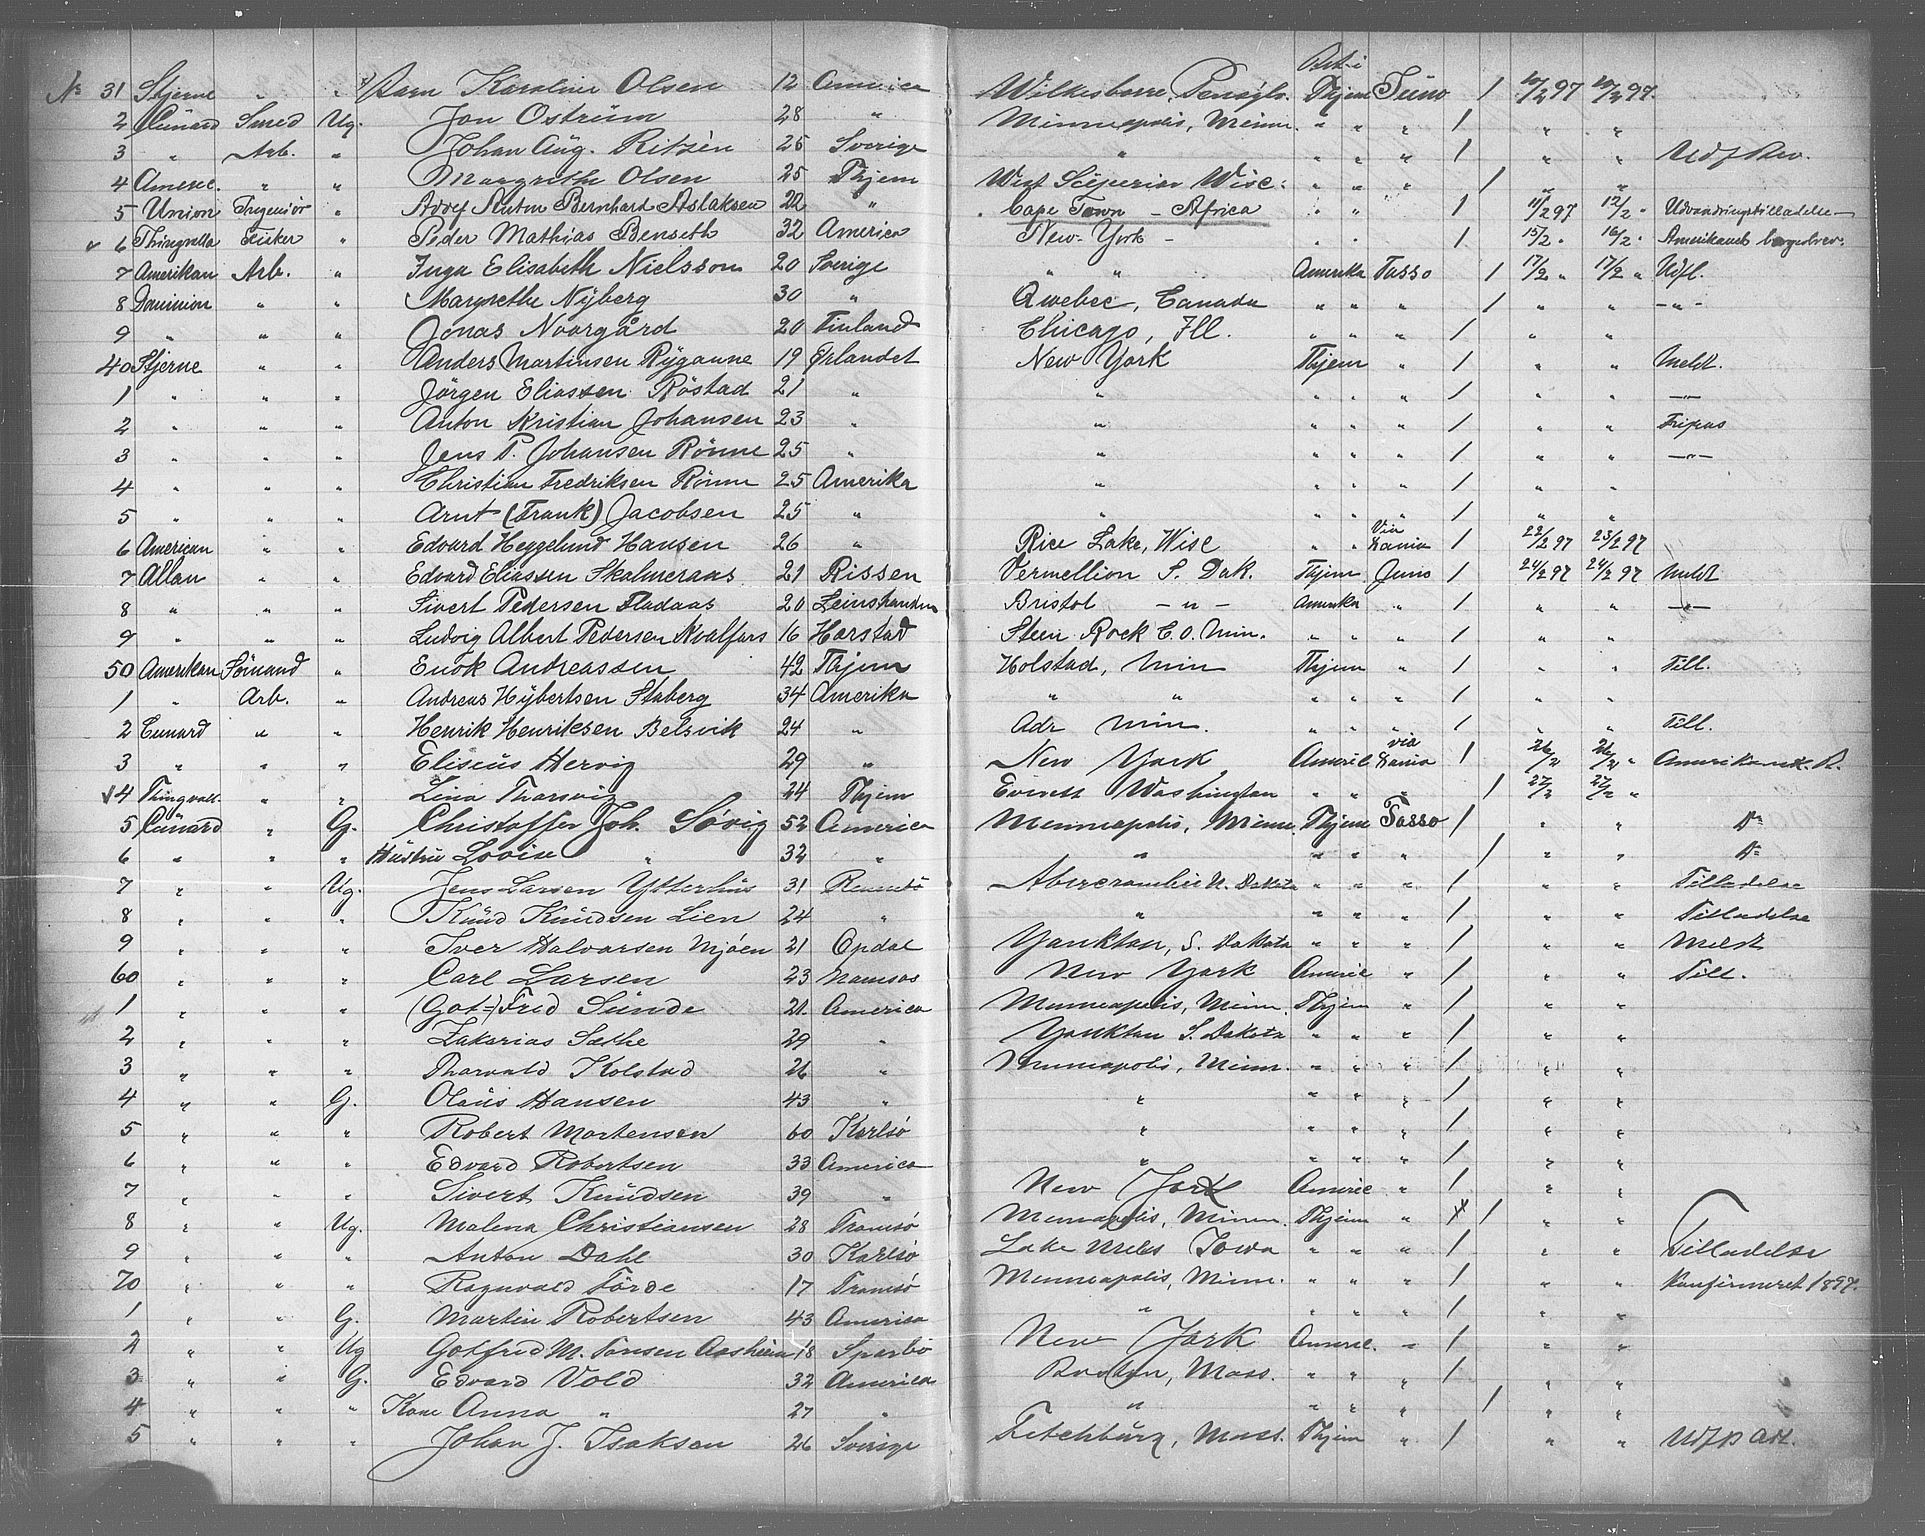 Bet. i
No 31 Stjerne " " Barn Karoline Olsen 12 America Wilkesbarre, Pensylv. Thjem Juno / 10/2 97 10/2 97.
2 Cunard Smed Ug. Jon Ostrüm 28 " Minneapolis, Minn. " " " / " "
3 " Arb. " Johan Aug. Ritzén 25 Sverige " " " " / " "
4 Americ. " " Margreth Olsen 25 Thjem West Superior Wisc. " " " / " "
5 Union Ingeniör " Adolf Anton Bernhard Aslaksen 22 " Cape Town - Africa " " / 11/2 97 12/2 " Udvandringstilladelse
6 Thingvalla Fisker " Peder Mathias Benseth 32 America New-York - " " / 15/2 " 16/2 " Amerikansk borgerbrev.
7 Amerikan Arb. " Inga Elisabeth Nielsson 20 Sverige " " Amerika Tasso / 17/2 " 17/2 " Udfl.
8 Dominion " " Margrethe Nyberg 30 " Qwebec, Canada " " " / " " -"-
9 " " " Jonas Noorgård 20 Finland Chicago, Ill. " " " / " "
40 Stjerne " " Anders Martinsen Rÿganne 19 Ørlandet New York Thjem " / " " Meldt.
1 " " " Jörgen Eliassen Röstad 21 " " " " " / " " -"-
2 " " " Anton Kristian Johansen 23 " " " " " / " " Fripas
3 " " " Jens P. Johansen Rönne 25 " " " " " / " " -"-
4 " " " Christian Fredriksen Rönne 25 Amerika " " " " / " "
5 " " " Arnt (Frank) Jacobsen 25 " " " " " / " "
6 American " " Edvard Heggelund Hansen 26 " Rice Lake, Wisc " " Via Dania / 22/2 97 23/2 97
7 Allan " " Edvard Eliassen Skalmeraas 21 Rissen Vermellion S. Dak. Thjem Juno / 24/2 97 24/2 97 Meldt
8 " " " Sivert Pedersen Fladaas 20 Leinstranden Bristol - " - Amerika " / " " -"-
9 " " " Ludvig Albert Pedersen Kvalfors 16 Harstad Steen Rock C.O. Min. " " " / " "
50 Amerikan Sömand " Enok Andreassen 42 Thjem Holstad, Min Thjem " / " " Till.
1 " Arb. " Andreas Hÿbertsen Staberg 34 Amerika " " " " " / " "
2 Cunard " " Henrik Henriksen Belsvik 24 " Adr Min. " " " / " " Till.
3 " " " Eliseüs Hervig 29 " New York Americ via Dania / 26/2 26/2 " Amerikansk B.
4 Thingvall. " " Lina Thorsvig 24 Thjem Everett Washington " " " / 27/2 27/2 "
5 Cunard " G. Christoffer Joh. Sövig 52 America Minneapolis, Minn. Thjem Tasso / " " Do
6 " " " Hustru Lovise " 32 " " " " " / " " Do
7 " " Ug. Jens Larsen Ytterhüs 31 Rennebö Abercrombie N. Dakota " " " / " " Tilladelse
8 " " " Knüd Knüdsen Lien 24 " " " " " / " " Tilladelse
9 " " " Iver Halvorsen Mjöen 21 Opdal Yankton, S. Dakota " " " / " " Meldt
60 " " " Carl Larsen 23 Namsos New York Americ " / " " Till.
1 " " " (Got=)Fred Sünde 21 America Minneapolis, Minn. Thjem " / " "
2 " " " Zakarias Sæthe 29 " Yankton S. Dakota " " " / " "
3 " " " Thorvald Kolstad 26 " Minneapolis, Minn. " " " / " "
4 " " G. Olaüs Hansen 43 " " " " " / " "
5 " " " Robert Mortensen 60 Karlsö " " " " / " "
6 " " " Edvard Robertsen 33 America " " " " / " "
7 " " " Sivert Knüdsen 39 " New York Americ " / " "
8 " " Ug. Malena Christiansen 28 Tromsö Minneapolis, Minn. Thjem " / " "
9 " " " Anton Dahl 30 Karlsö Lake Mills Iowa " " " / " " Tilladelse
70 " " " Ragnvald Förde 17 Tromsö Minneapolis, Minn. " " " / " " Konfirmeret 1897.
1 " " G. Martin Robertsen 43 America " " " " / " "
2 " " Ug Gotfred M. Tonsen Aasheim 18 Sparbö New York Americ. " / " "
3 " " G. Edvard Vold 32 America Boston, Mass. " " " / " "
4 " " " Kone Anna " 27 " " " " " / " "
5 " " " Johan J. Isaksen 26 Sverige Fitchbürg, Mass. Thjem " / " "